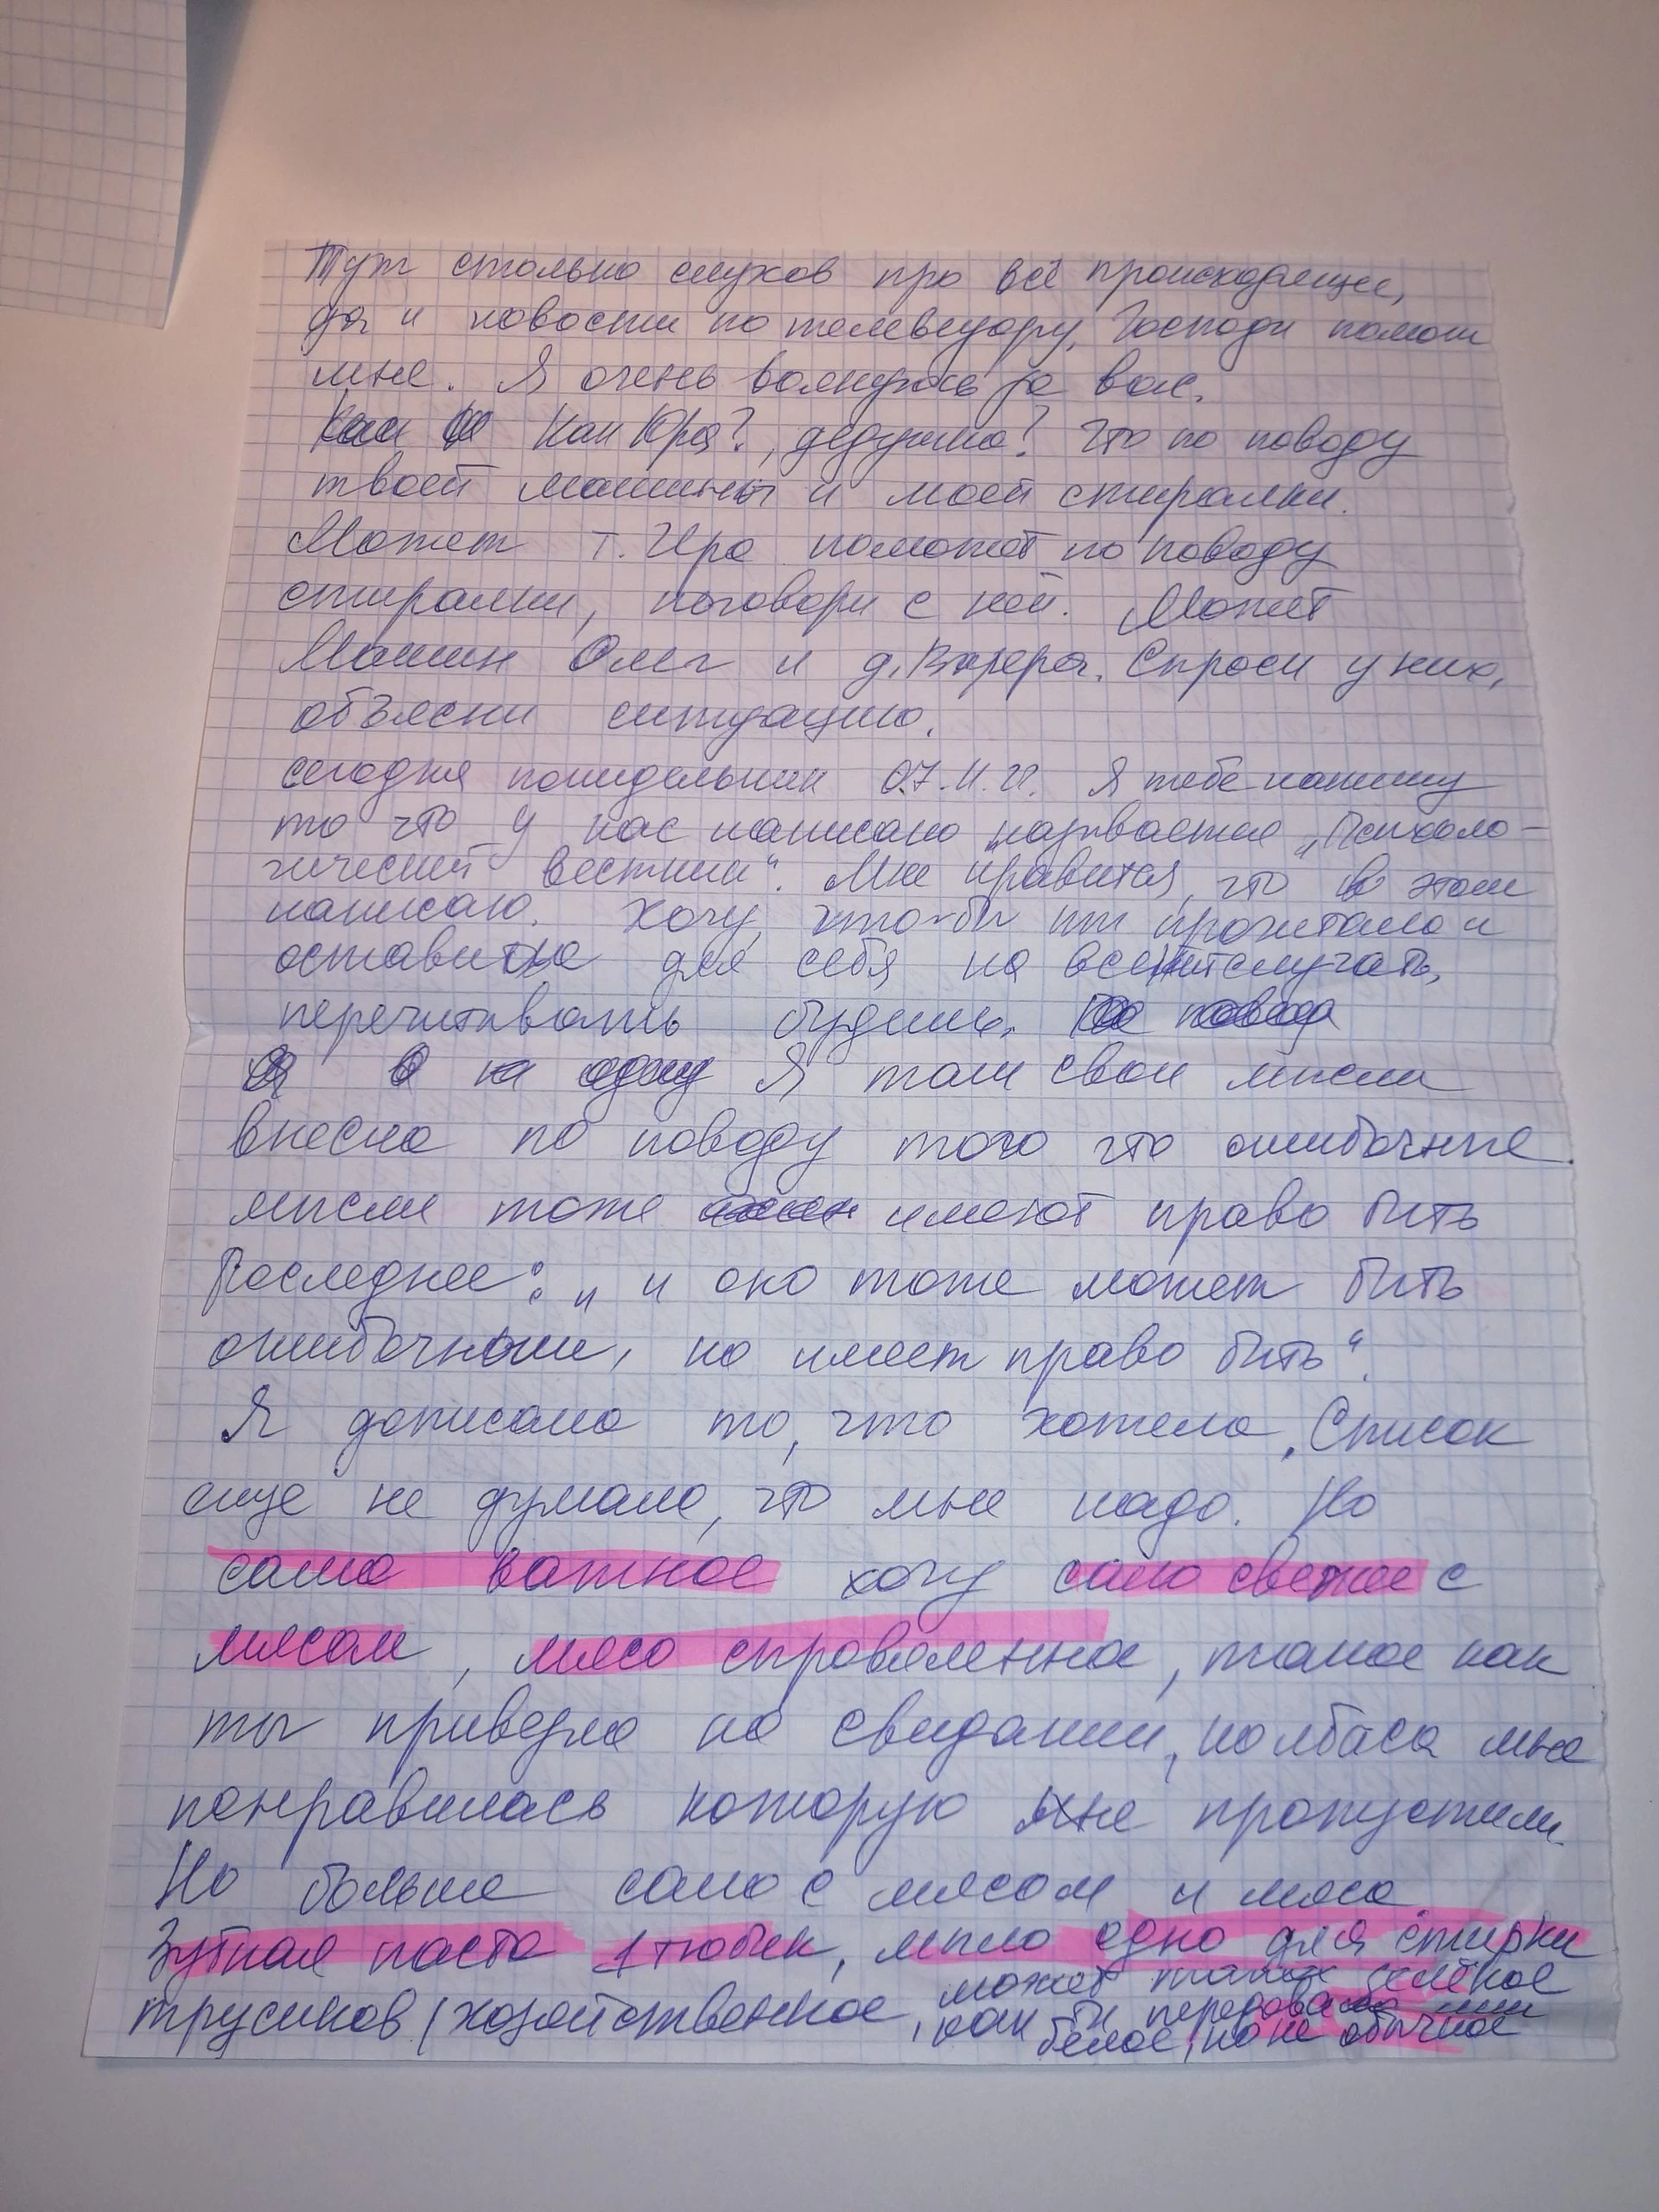 Тут столько слухов про всё происходящее,
да и новости по телевизору, Господи помоги
мне. Я очень волнуюсь за вас.
Как Как Юра?, дедушка? Что по поводу
твоей машины и моей стиралки.
Может т. Ира поможет по поводу
стиралки, поговори с ней. Может
Машин Олег и д. Валера. Спроси у них,
объясни ситуацию.
сегодня понидельник 07.11.22. Я тебе напишу
то что у нас написано, называется „Психоло-
гический вестник“. Мне нравится, что в этом
написано. Хочу, что-бы ты прочитала и
оставила для себя на
перечитывать будешь. По повод
Я в на одну Я там свои мысли
внесла по поводу того что ошибочные
мысли тоже имеют право быть
Последнее: „и оно тоже может быть
ошибочным, но имеет право быть“.
Я дописала то, что хотела. Список
еще не думала, что мне надо. Но
само важное хочу сало свежее с
мясом, мясо сыровяленное, такое как
ты привезла на свидании, колбаса мне
понравилась которую мне пропустили.
Но больше сало с мясом и мясо
Зубная паста 1 тюбик, мыло одно для стирки
трусиков (хозяйственное, может такое зелёное
как ты передавала или
белое, но не обычное